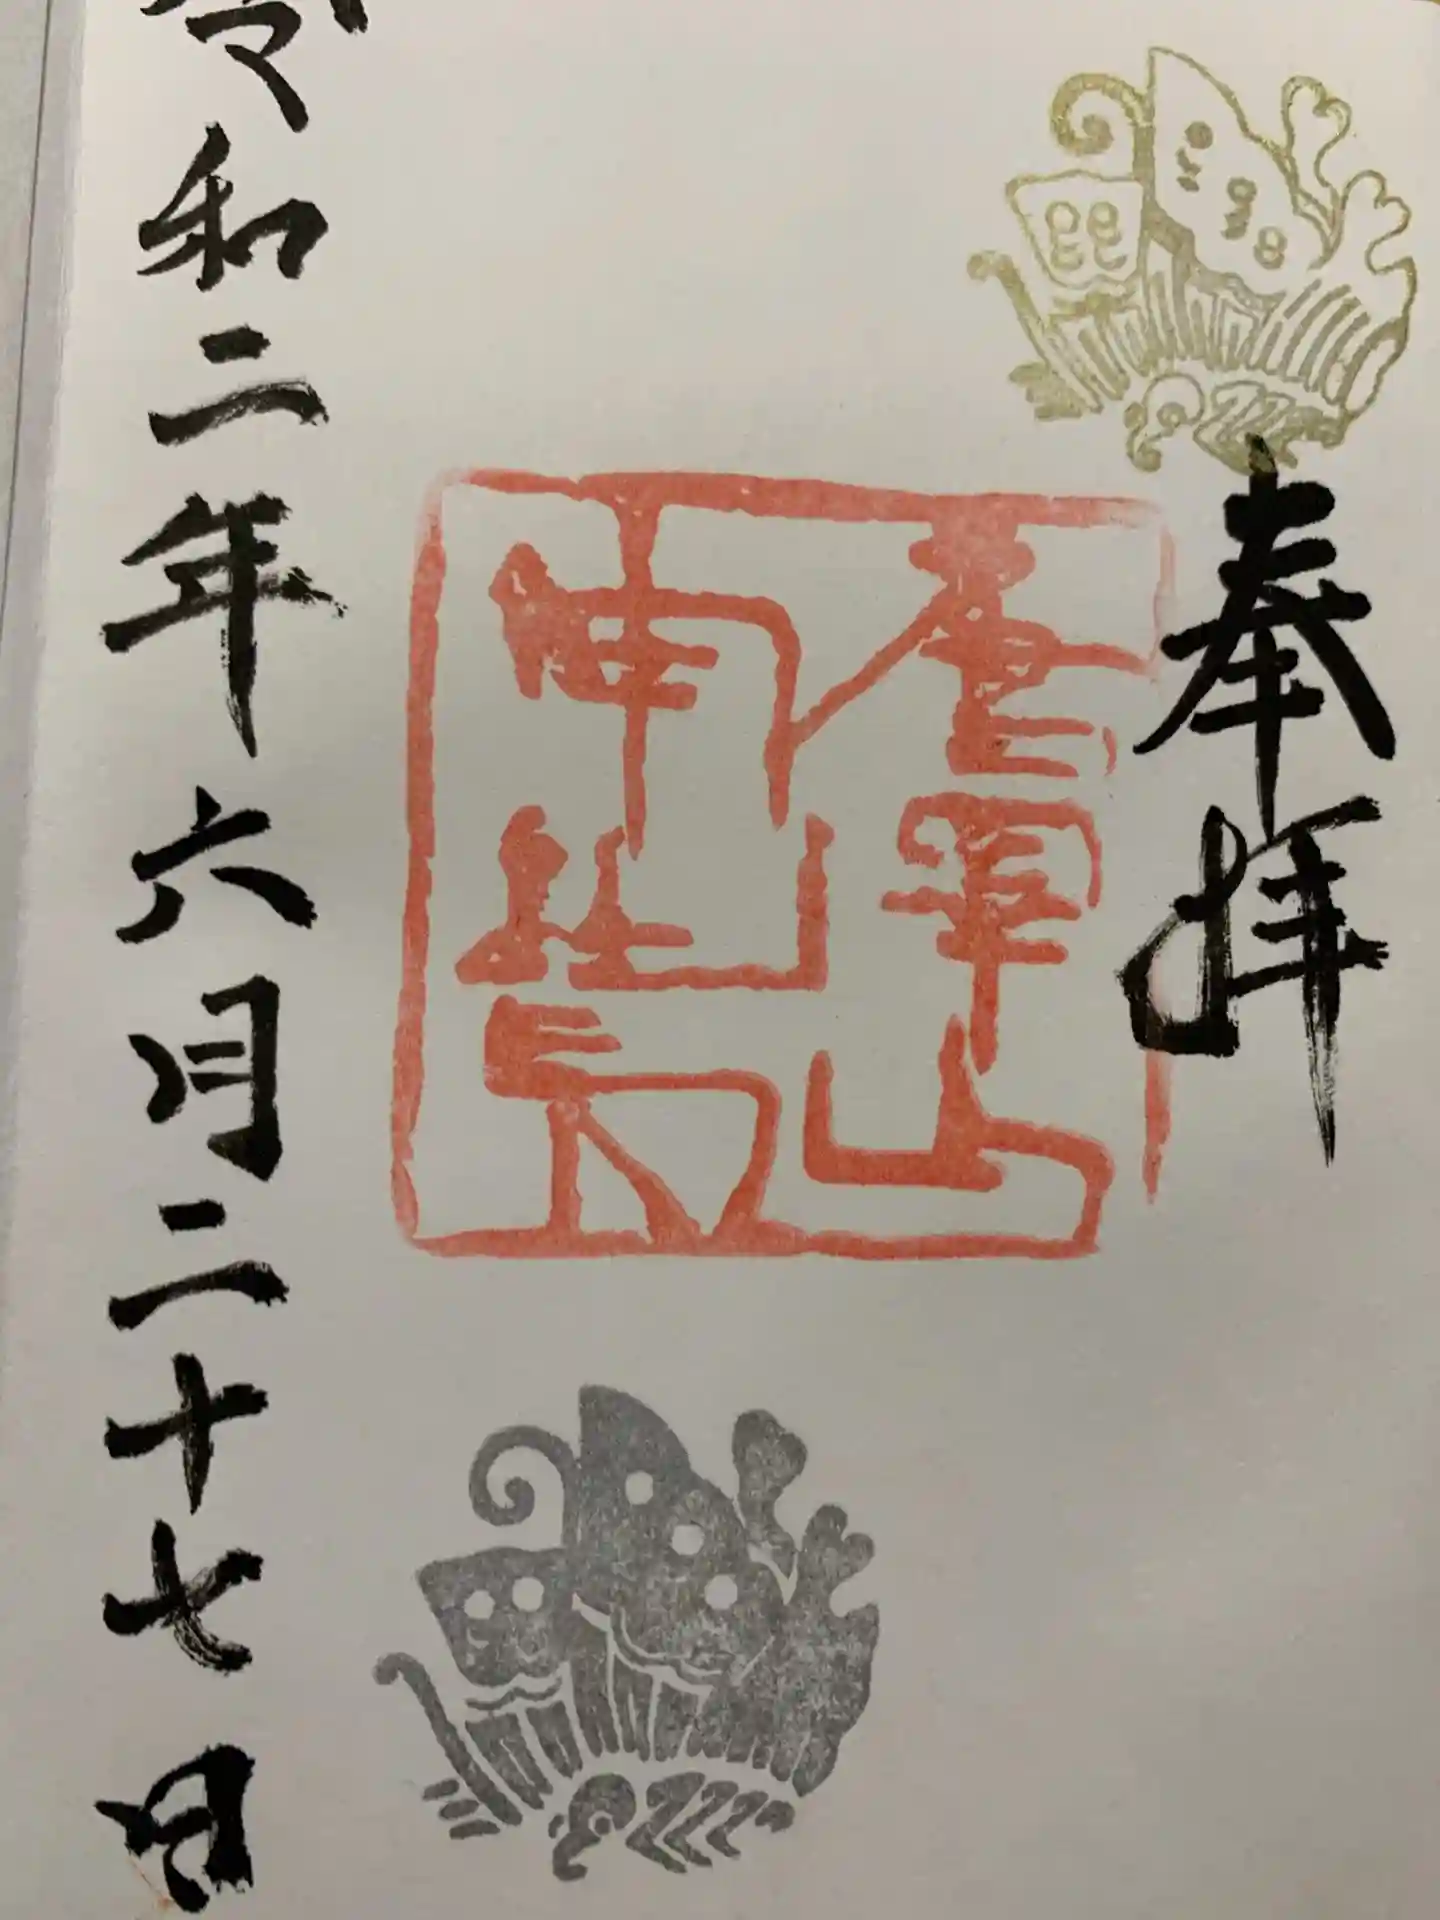 奉拝
令和二年六月二十七日